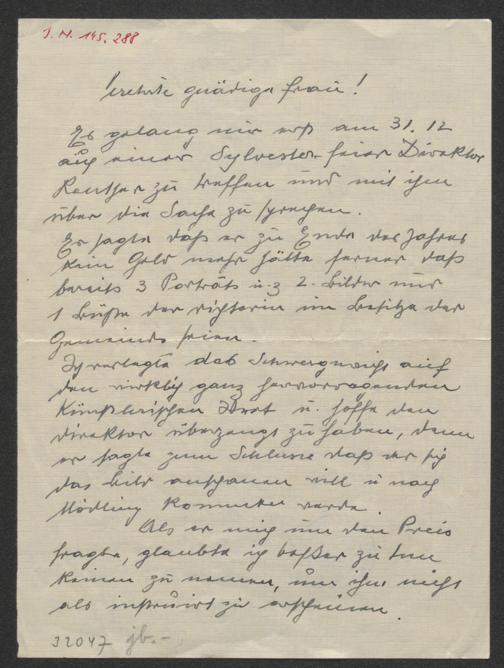 I.N. 145.288
Verehrte gnädige Frau!
Es gelang mir erst am 31.12
auf einer Sylvesterfeier Direktor
Reuther zu treffen und mit ihm
über die Sache zu sprechen.
Er sagte daß er zu Ende des Jahres
kein Geld mehr hätte ferner daß
bereits 3 Porträts u.z 2. Bilder und
1 Büste der Dichterin im Besitze der
Gemeinde seien.
Ich verlegte das Schwergewicht auf
den wirklich ganz hervorragenden
Künstlerischen Wert u. hoffe den
Direktor überzeugt zu haben, denn
er sagte zum Schlusse daß er sich
das Bild anschauen will u nach
Mödling kommen werde.
Als er mich um den Preis
fragte, glaubte ich beßer zu tun
keinen zu nennen, um ihm nicht
als instruirt zu erscheinen.
32047 jb.-